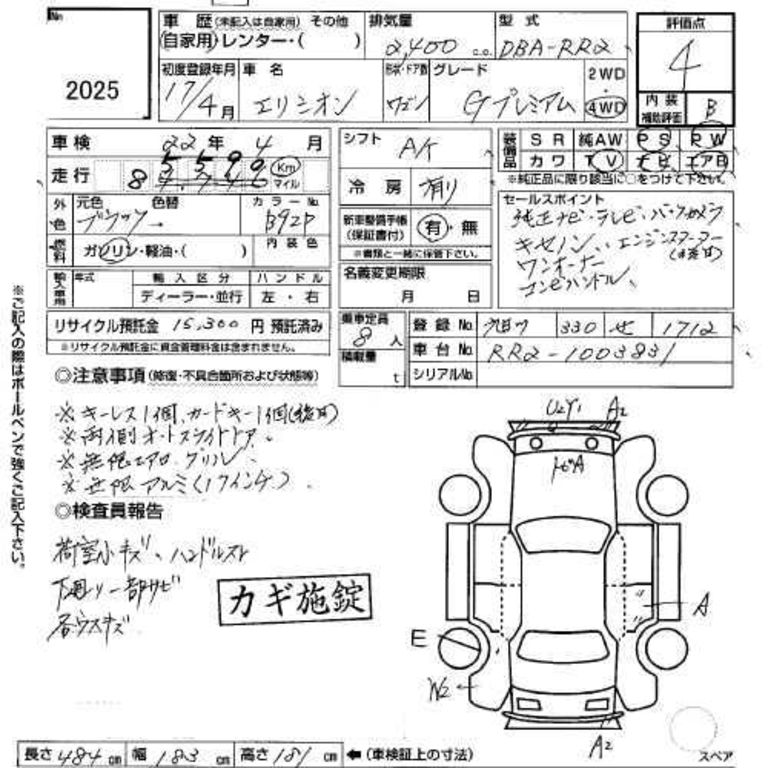 No.
2025
車歴 (未記入は自家用) その他
自家用・レンター・( )
排気量
2,400 c.c.
型式
DBA-RR2
評価点
4
初度登録年月
17/4月
車名
エリシオン
形状・ドア数
ワゴン
グレード
Gプレミアム
2WD
・
4WD
内装
補助評価
B
車検 22年 4月
シフト
A/T
装備品
SR 純AW PS PW
カワ TV ナビ エアB
※純正品に限り該当に○をつけて下さい。
走行
8 5590
Km
マイル
冷房 有り
セールスポイント
純正ナビ・テレビ・バックカメラ
キセノン、エンジンスターター
(後日)
ワンオーナー
コンビハンドル
外色
元色 色替
ブラック
カラーNo.
B92P
新車整備手帳
(保証書付)
有・無
※書類と一緒に保管下さい。
燃料
ガソリン・軽油・( )
内装色
名義変更期限
月 日
輸入車用
年式
輸入区分
ハンドル
ディーラー・並行
左・右
リサイクル預託金 15,300 円 預託済み
※リサイクル預託金に資金管理料金は含まれません。
乗車定員
8人
積載量
t
登録No. 330 せ 1712
車台No. RR2-1003831
シリアルNo.
◎注意事項 (修復・不具合箇所および状態等)
※キーレス1個、カードキー1個(後日)
※両側オートスライドドア、
※無限エアロ、グリル、
※無限アルミ(17インチ)、
◎検査員報告
荷室小キズ、ハンドルスレ
下廻り一部サビ
各ウスキズ
カギ施錠
※ご記入の際はボールペンで強くご記入下さい。
U2Y1 A2
トビA
A
E
W2
A2
スペア
長さ 484 cm 幅 183 cm 高さ 181 cm ←(車検証上の寸法)